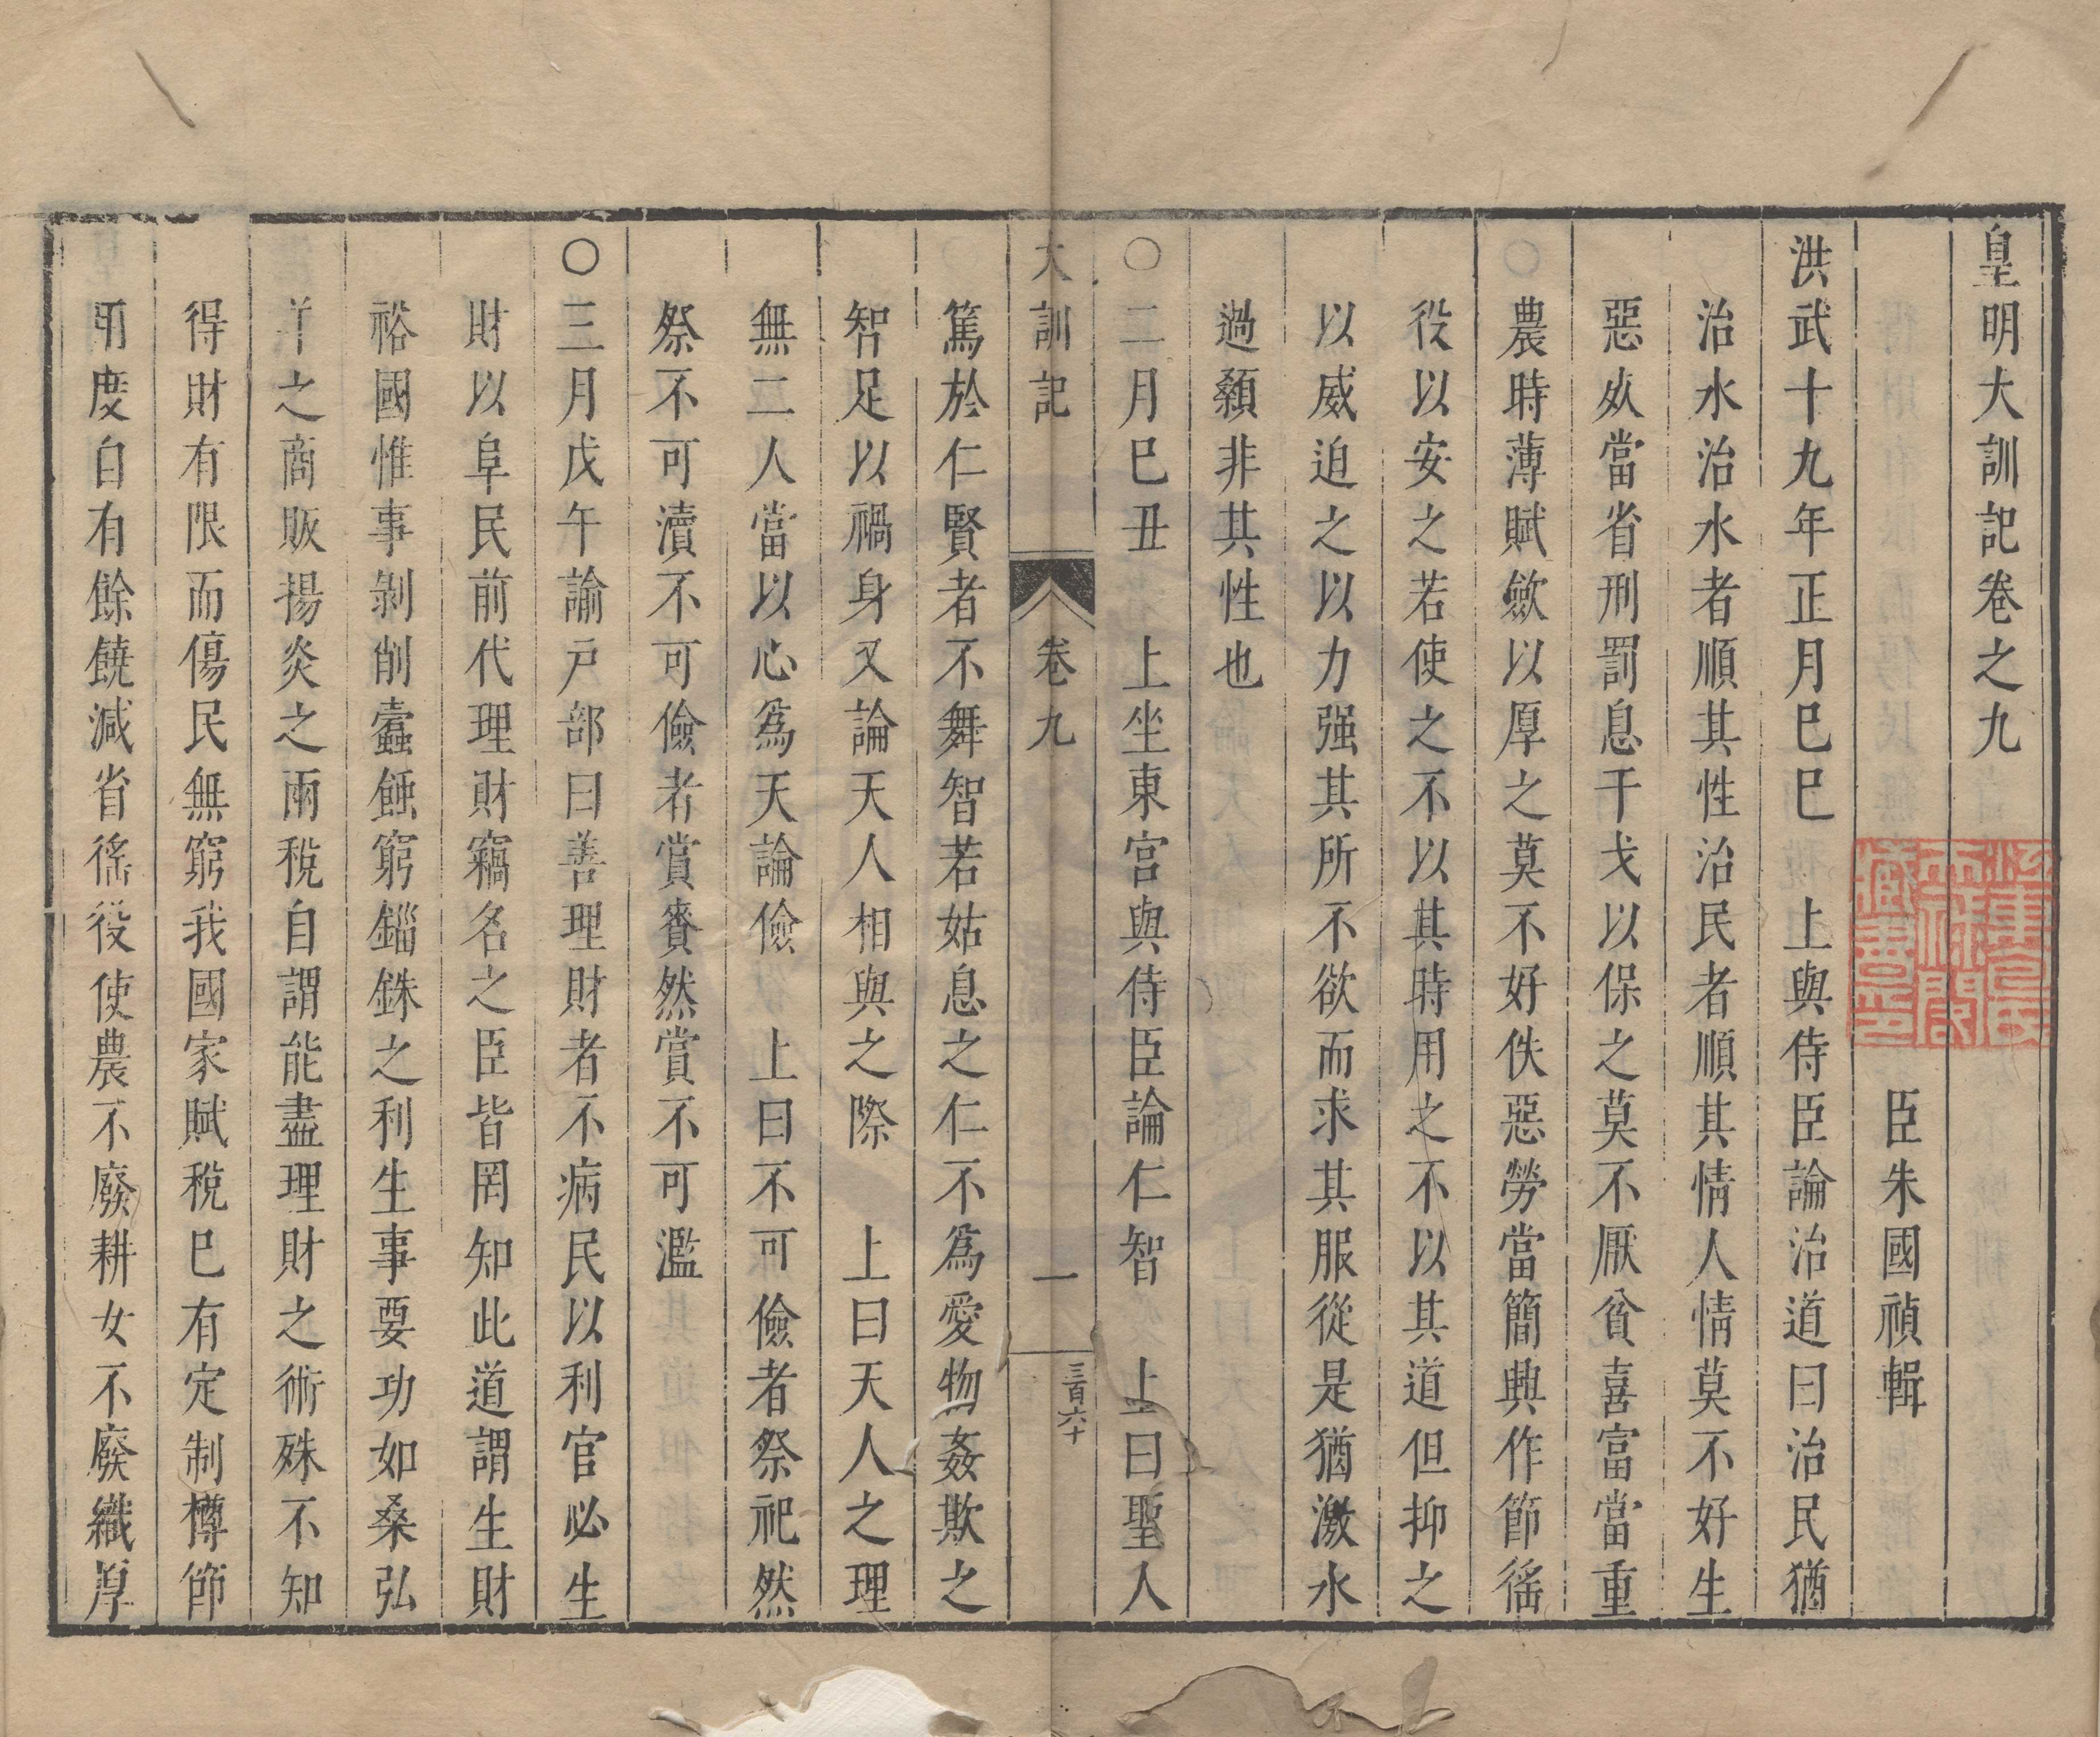 皇明大訓記卷之九
臣朱國禎輯
洪武十九年正月巳巳　上與侍臣論治道曰治民猶
治水治水者順其性治民者順其情人情莫不好生
惡死當省刑罰息干戈以保之莫不厭貧喜富當重
農時薄賦斂以厚之莫不好佚惡勞當簡興作節徭
役以安之若使之不以其時用之不以其道但抑之
以威迫之以力强其所不欲而求其服從是猶激水
過顙非其性也
○二月巳丑　上坐東宮與侍臣論仁智　上曰聖人
大訓記　卷九　一　三百六十
篤於仁賢者不舞智若姑息之仁不爲愛物姦欺之
智足以禍身又論天人相與之際　上曰天人之理
無二人當以心爲天論儉　上曰不可儉者祭祀然
祭不可瀆不可儉者賞賚然賞不可濫
○三月戊午諭戸部曰善理財者不病民以利官必生
財以阜民前代理財竊名之臣皆罔知此道謂生財
裕國惟事剝削蠹蝕窮錙銖之利生事要功如桑弘
羊之商販楊炎之兩稅自謂能盡理財之術殊不知
得財有限而傷民無窮我國家賦稅巳有定制樽節
用度自有餘饒減省徭役使農不廢耕女不廢織厚